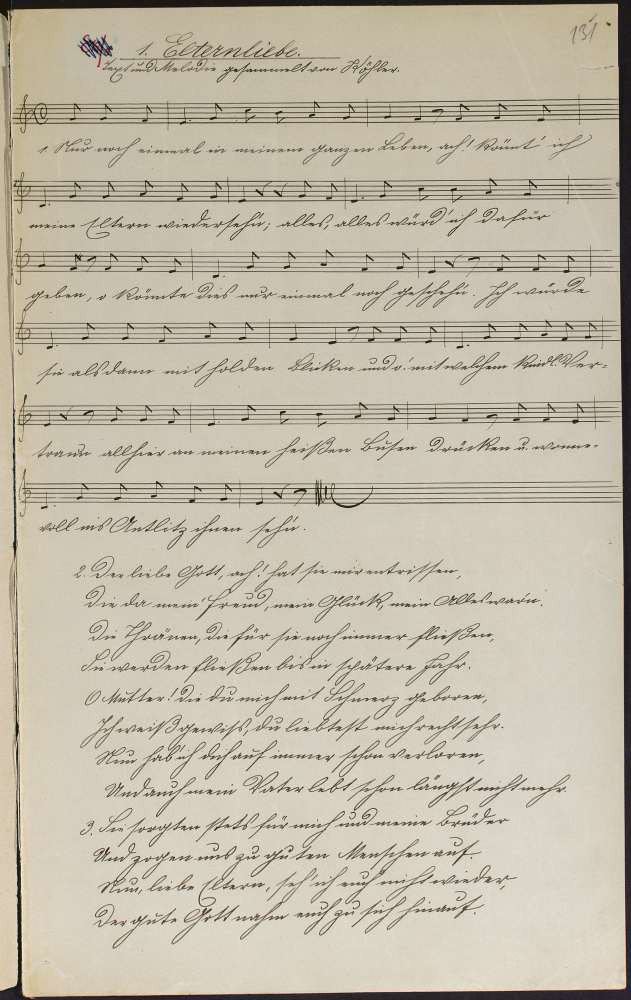 131
1. Elternliebe.
Text und Melodie gesammelt von Köhler.
1. Nur noch einmal in meinem ganzen Leben, ach! könnt' ich
meine Eltern wiedersehn; alles, alles würd' ich dafür
geben, o könnte dies nur einmal noch geschehn. Ich würde
sie alsdann mit holden Blicken und o! mit welchem kindl. Ver-
traun allhier an meinen heißen Busen drücken u. wonne-
voll ins Antlitz ihnen sehn.
2. Der liebe Gott, ach! hat sie mir entrissen,
Die da mein Freud, mein Glück, mein Alles warn.
Die Thränen, die für sie noch immer fließen,
Sie werden fließen bis in spätere Jahr.
O Mutter! die du mich mit Schmerz geboren,
Ich weiß gewiß, du liebtest mich recht sehr.
Nun hab ich dich auf immer schon verloren,
Und auch mein Vater lebt schon längst nicht mehr.
3. Sie sorgten stets für mich und meine Brüder
Und zogen uns zu guten Menschen auf.
Nun, liebe Eltern, seh' ich euch nicht wieder,
Der gute Gott nahm euch zu sich hinauf.